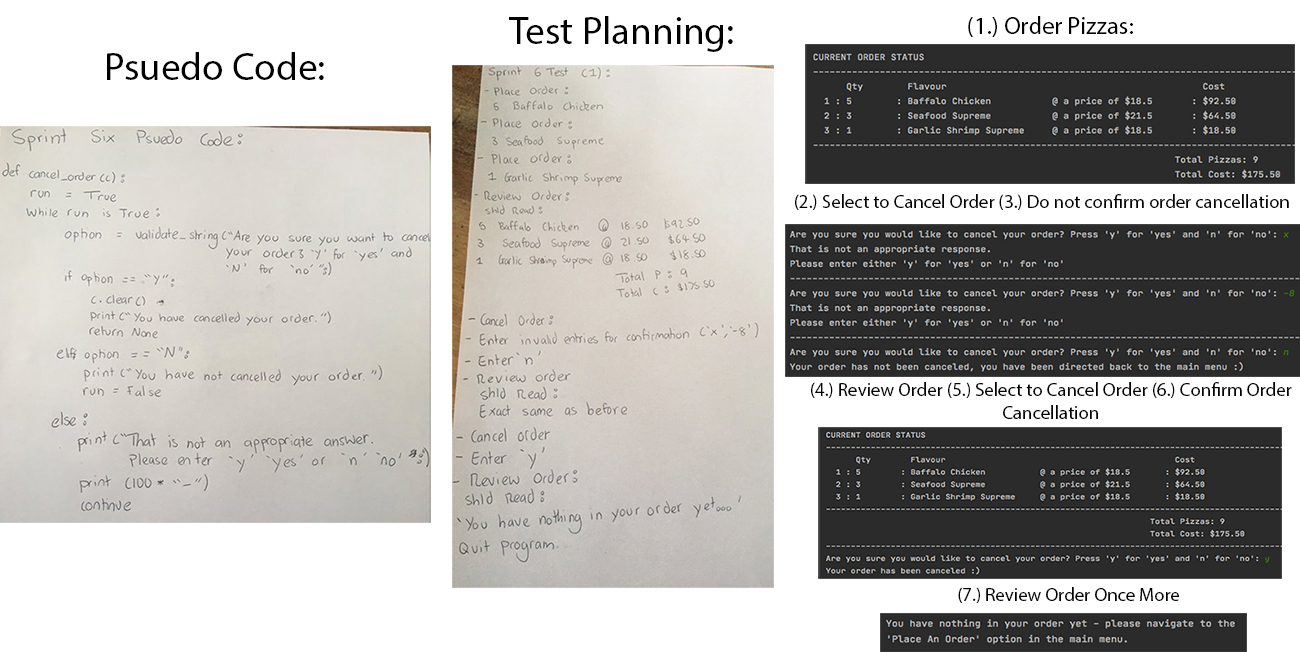 Psuedo Code:
Sprint Six Psuedo Code:
def cancel_order(c):
run = True
while run is True:
option = validate_string("Are you sure you want to cancel
your order? 'Y' for 'yes' and
'N' for 'no'":)
if option == "Y":
c.clear()
print("You have cancelled your order.")
return None
elif option == "N":
print("You have not cancelled your order.")
run = False
else:
print("That is not an appropriate answer.
Please enter 'y' 'yes' or 'n' 'no'":)
print (100 * "-")
continue
Test Planning:
Sprint 6 Test (1):
- Place order:
5 Baffalo Chicken
- Place order:
3 Seafood Supreme
- Place order:
1 Garlic Shrimp Supreme
- Review Order:
shld Read:
5 Baffalo Chicken @ 18.50 $92.50
3 Seafood Supreme @ 21.50 $64.50
1 Garlic Shrimp Supreme @ 18.50 $18.50
Total P: 9
Total C: $175.50
- Cancel Order:
- Enter invalid entries for confirmation ('x', '-8')
- Enter 'n'
- Review order
shld Read:
Exact same as before
- Cancel order
- Enter 'y'
- Review Order:
shld Read:
'You have nothing in your order yet...'
Quit program.
(1.) Order Pizzas:
CURRENT ORDER STATUS
Qty Flavour Cost
1 : 5 : Baffalo Chicken @ a price of $18.5 : $92.50
2 : 3 : Seafood Supreme @ a price of $21.5 : $64.50
3 : 1 : Garlic Shrimp Supreme @ a price of $18.5 : $18.50
Total Pizzas: 9
Total Cost: $175.50
(2.) Select to Cancel Order (3.) Do not confirm order cancellation
Are you sure you would like to cancel your order? Press 'y' for 'yes' and 'n' for 'no': x
That is not an appropriate response.
Please enter either 'y' for 'yes' or 'n' for 'no'
Are you sure you would like to cancel your order? Press 'y' for 'yes' and 'n' for 'no': -8
That is not an appropriate response.
Please enter either 'y' for 'yes' or 'n' for 'no'
Are you sure you would like to cancel your order? Press 'y' for 'yes' and 'n' for 'no': n
Your order has not been canceled, you have been directed back to the main menu :)
(4.) Review Order (5.) Select to Cancel Order (6.) Confirm Order
Cancellation
CURRENT ORDER STATUS
Qty Flavour Cost
1 : 5 : Baffalo Chicken @ a price of $18.5 : $92.50
2 : 3 : Seafood Supreme @ a price of $21.5 : $64.50
3 : 1 : Garlic Shrimp Supreme @ a price of $18.5 : $18.50
Total Pizzas: 9
Total Cost: $175.50
Are you sure you would like to cancel your order? Press 'y' for 'yes' and 'n' for 'no': y
Your order has been canceled :)
(7.) Review Order Once More
You have nothing in your order yet - please navigate to the
'Place An Order' option in the main menu.